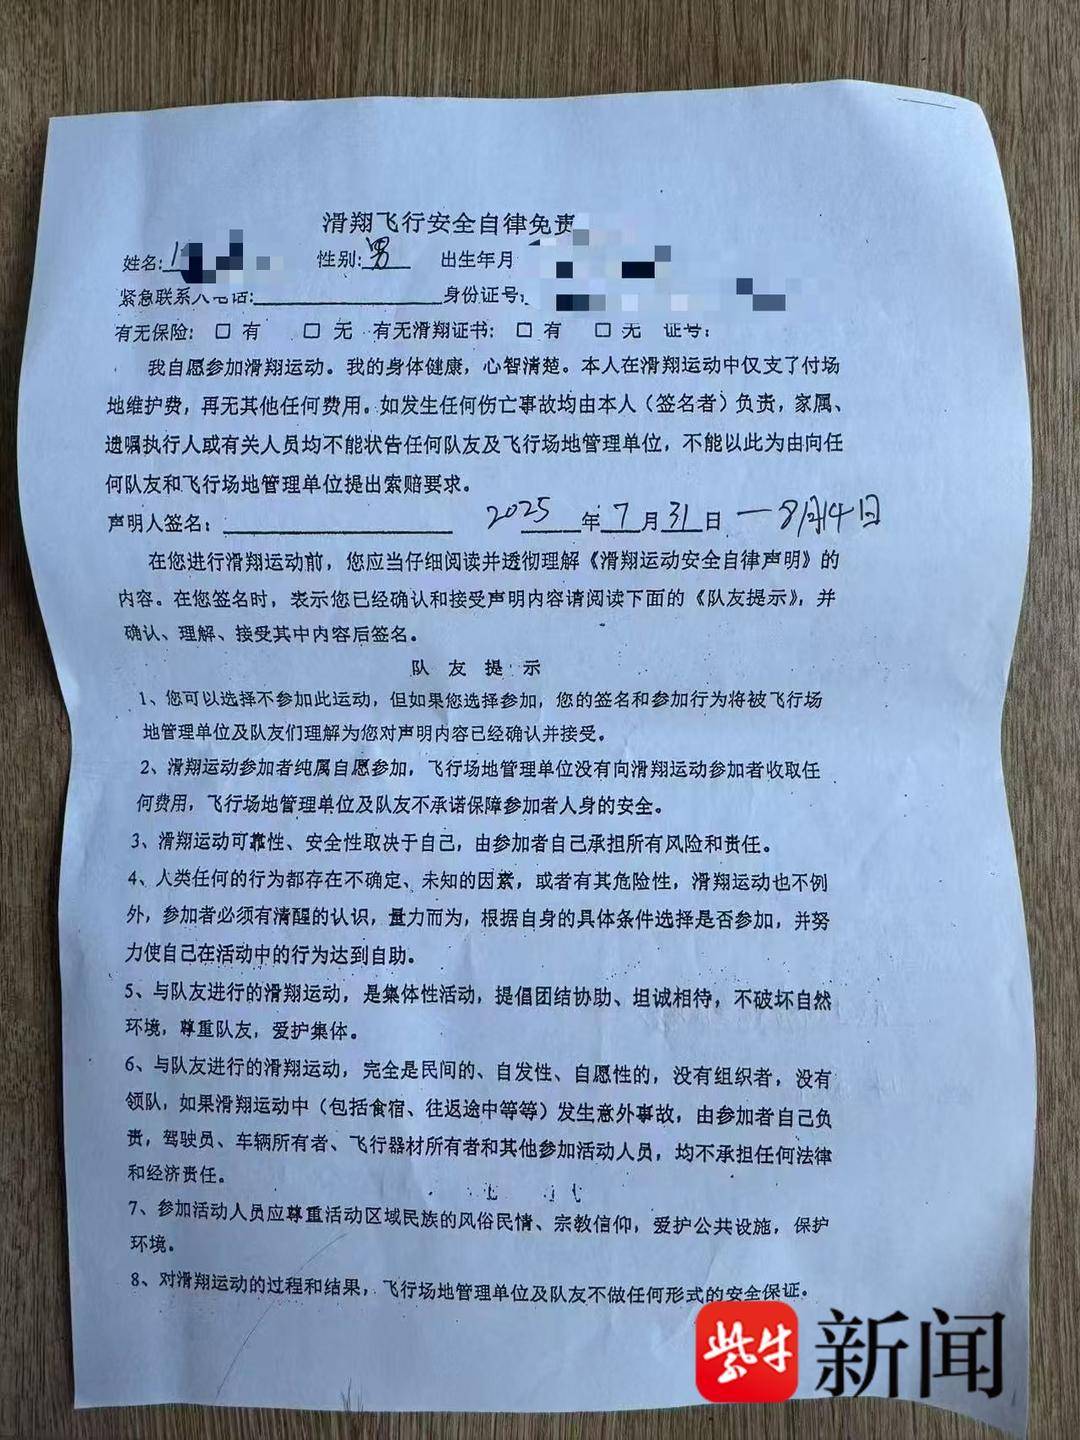 滑翔飞行安全自律免责
姓名: 性别:男 出生年月
紧急联系人电话: 身份证号:
有无保险: □ 有 □ 无 有无滑翔证书: □ 有 □ 无 证号:
我自愿参加滑翔运动。我的身体健康，心智清楚。本人在滑翔运动中仅支了付场
地维护费，再无其他任何费用。如发生任何伤亡事故均由本人（签名者）负责，家属、
遗嘱执行人或有关人员均不能状告任何队友及飞行场地管理单位，不能以此为由向任
何队友和飞行场地管理单位提出索赔要求。
声明人签名: 2025年7月31日 一8月14日
在您进行滑翔运动前，您应当仔细阅读并透彻理解《滑翔运动安全自律声明》的
内容。在您签名时，表示您已经确认和接受声明内容请阅读下面的《队友提示》，并
确认、理解、接受其中内容后签名。
队 友 提 示
1、您可以选择不参加此运动，但如果您选择参加，您的签名和参加行为将被飞行场
地管理单位及队友们理解为您对声明内容已经确认并接受。
2、滑翔运动参加者纯属自愿参加，飞行场地管理单位没有向滑翔运动参加者收取任
何费用，飞行场地管理单位及队友不承诺保障参加者人身的安全。
3、滑翔运动可靠性、安全性取决于自己，由参加者自己承担所有风险和责任。
4、人类任何的行为都存在不确定、未知的因素，或者有其危险性，滑翔运动也不例
外，参加者必须有清醒的认识，量力而为，根据自身的具体条件选择是否参加，并努
力使自己在活动中的行为达到自助。
5、与队友进行的滑翔运动，是集体性活动，提倡团结协助、坦诚相待，不破坏自然
环境，尊重队友，爱护集体。
6、与队友进行的滑翔运动，完全是民间的、自发性、自愿性的，没有组织者，没有
领队，如果滑翔运动中（包括食宿、往返途中等等）发生意外事故，由参加者自己负
责，驾驶员、车辆所有者、飞行器材所有者和其他参加活动人员，均不承担任何法律
和经济责任。
7、参加活动人员应尊重活动区域民族的风俗民情、宗教信仰，爱护公共设施，保护
环境。
8、对滑翔运动的过程和结果，飞行场地管理单位及队友不做任何形式的安全保证。
紫牛新闻